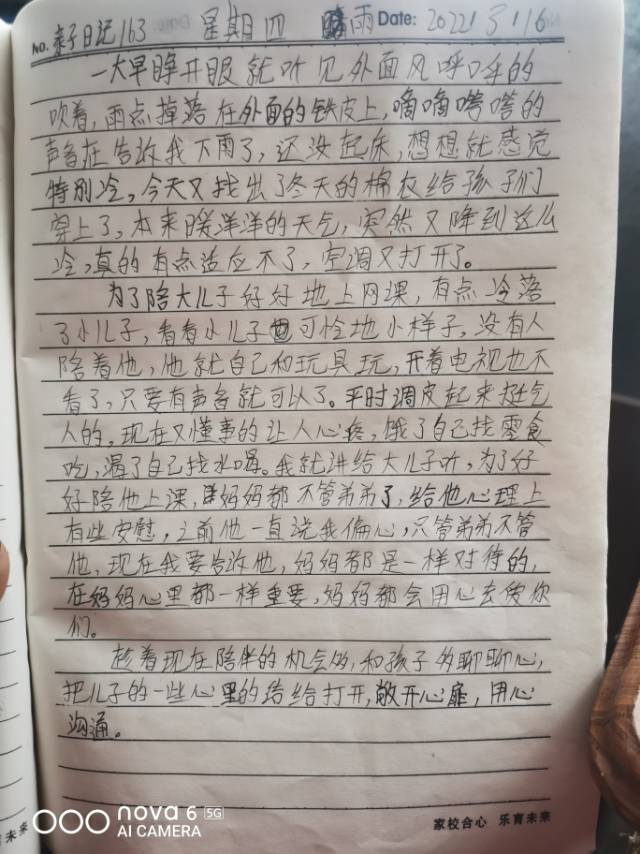 No. 亲子日记163 星期四 雨 Date: 2022 3 16
一大早睁开眼就听见外面风呼呼的
吹着,雨点掉落在外面的铁皮上,嘀嘀嗒嗒的
声音在告诉我下雨了,还没起床,想想就感觉
特别冷,今天又找出了冬天的棉衣给孩子们
穿上了,本来暖洋洋的天气,突然又降到这么
冷,真的有点适应不了,空调又打开了。
为了陪大儿子好好地上网课,有点冷落
了小儿子,看着小儿子可怜地小样子,没有人
陪着他,他就自己和玩具玩,开着电视也不
看了,只要有声音就可以了。平时调皮起来挺气
人的,现在又懂事的让人心疼,饿了自己找零食
吃,渴了自己找水喝。我就讲给大儿子听,为了好
好陪他上课,妈妈都不管弟弟了,给他心理上
有些安慰,之前他一直说我偏心,只管弟弟不管
他,现在我要告诉他,妈妈都是一样对待的,
在妈妈心里都一样重要,妈妈都会用心去爱你
们。
趁着现在陪伴的机会多,和孩子多聊聊心,
把儿子的一些心里的结给打开,敞开心扉,用心
沟通。
家校合心 乐育未来
未来
nova 6 5G
AI CAMERA